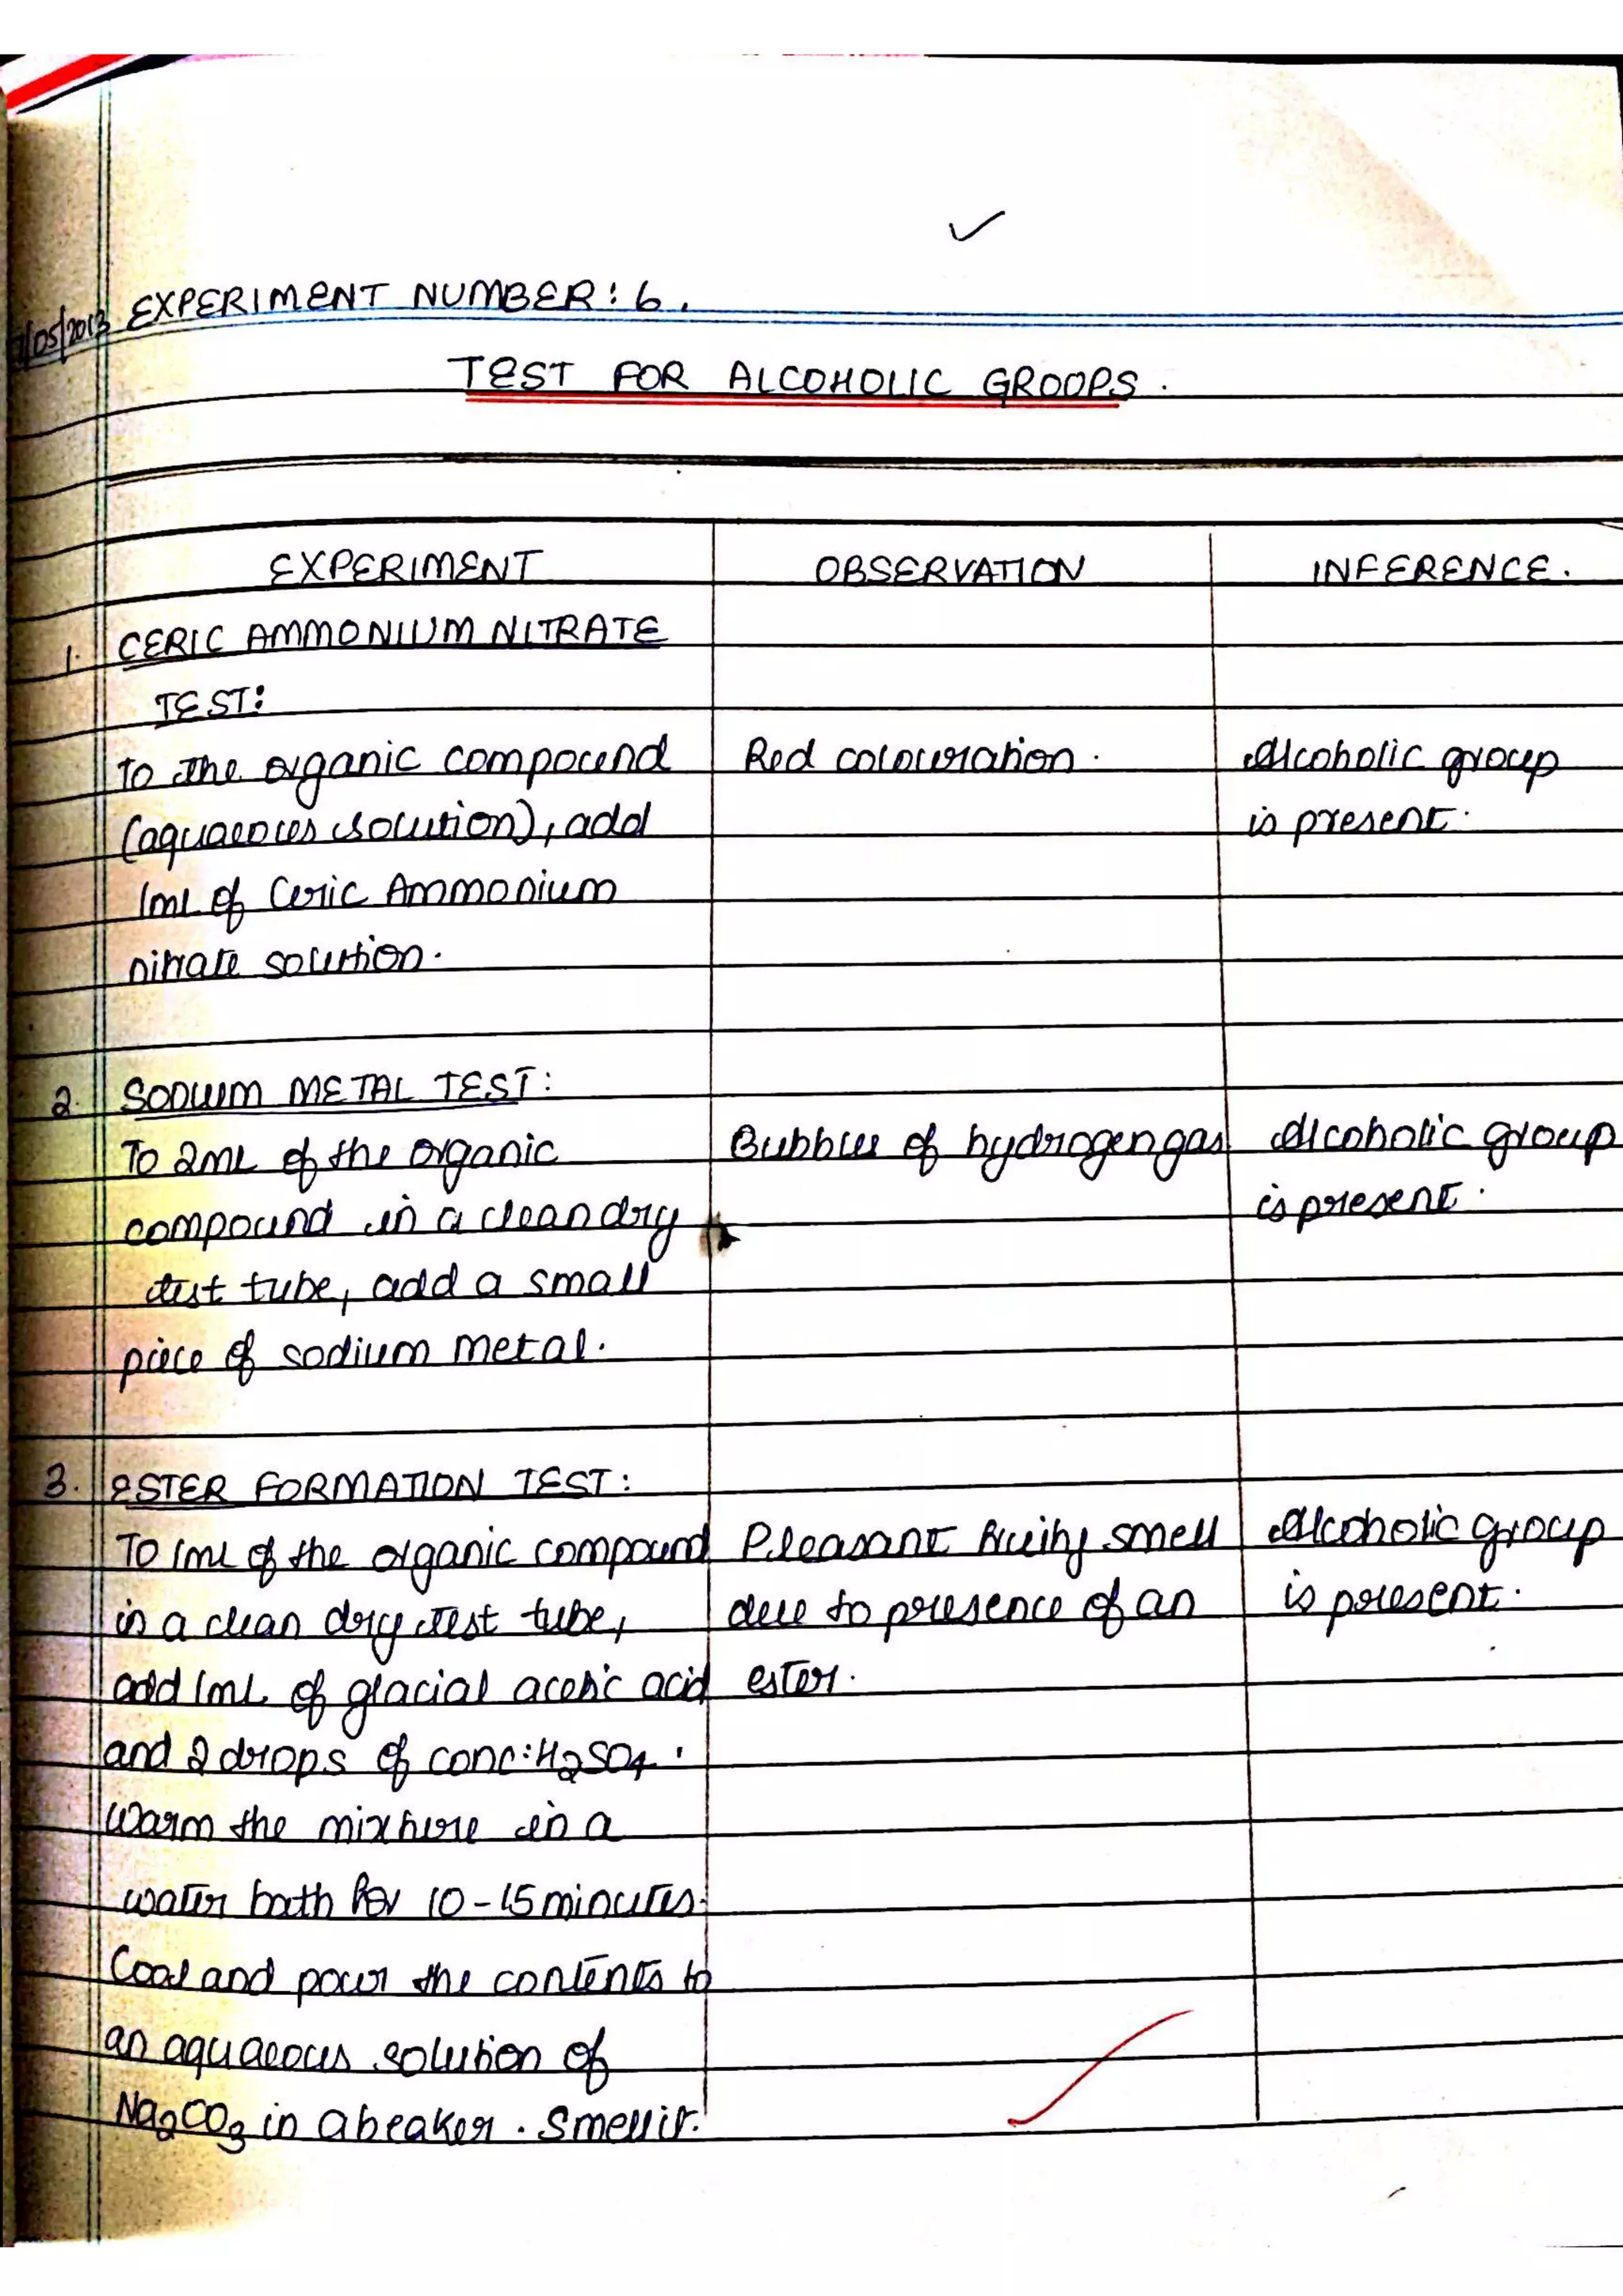 /05/2013 EXPERIMENT NUMBER: 6.
TEST FOR ALCOHOLIC GROOPS.
EXPERIMENT OBSERVATION INFERENCE.
1. CERIC AMMONIUM NITRATE
TEST:
To the organic compound Red colouration. Alcoholic group
(aquaeous solution), add is present.
1mL of Ceric Ammonium
nitrate solution.
2. SODIUM METAL TEST:
To 2mL of the organic Bubbles of hydrogen gas Alcoholic group
compound in a clean dry is present.
test tube, add a small
piece of sodium metal.
3. ESTER FORMATION TEST:
To 1mL of the organic compound Pleasant fruity smell Alcoholic group
in a clean dry test tube, due to presence of an is present.
add 1mL of glacial acetic acid ester.
and 2 drops of conc:H₂SO₄.
Warm the mixture in a
water bath for 10-15 minutes.
Cool and pour the contents to
an aquaeous solution of
Na₂CO₃ in a beaker. Smell it.